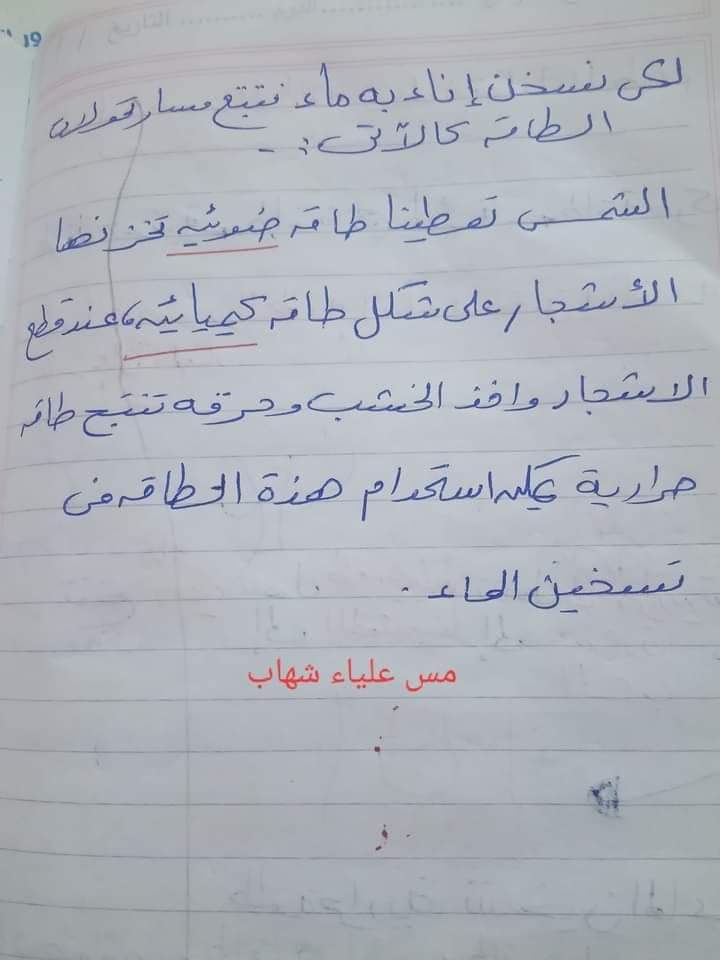 التاريخ / /
لكى نسخن إناء به ماء نتتبع مسار تحولات
الطاقة كالآتى :-
الشمس تعطينا طاقه ضوئيه تخزنها
الأشجار على شكل طاقه كيميائيه، عند قطع
الاشجار واخذ الخشب وحرقه تنتج طاقه
حرارية يمكن استخدام هذة الطاقه فى
تسخين الماء .
مس علياء شهاب